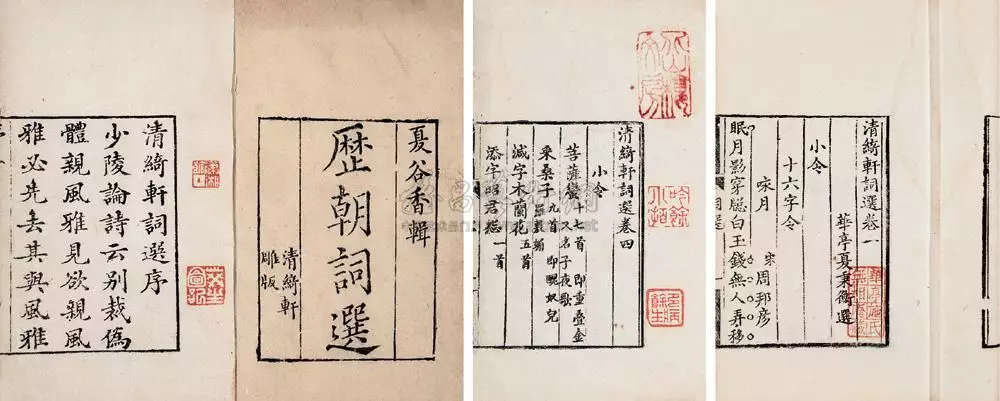 清綺軒詞選序
少陵論詩云别裁僞
體親風雅見欲親風
雅必先去其與風雅
夏谷香輯
歷朝詞選
清綺軒
雕版
清綺軒詞選卷四
小令
菩薩蠻十七首 又名子夜歌 即重叠金
采桑子九首 即醜奴兒
減字木蘭花五首
添字昭君怨一首
吟餘
小憩
多病
餘生
清綺軒詞選卷一
華亭夏秉衡選
小令
十六字令
咏月 宋周邦彦
眠月影穿牕白玉錢無人弄移
華亭施氏
無相庵藏